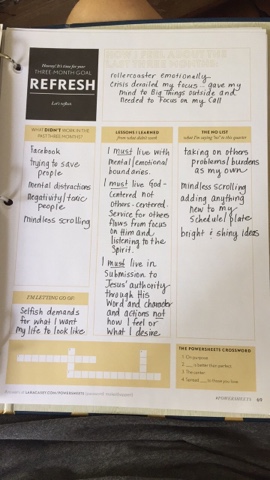 Hooray! It's time for your
THREE-MONTH GOAL
REFRESH
Let's reflect.
rollercoaster emotionally
Crisis derailed my focus... gave my
mind to Big Things outside and
Needed to Focus on my Call
WHAT DIDN'T WORK IN THE
PAST THREE MONTHS?
Facebook
trying to save
people
mental distractions
Negativity/toxic
people
mindless scrolling
LESSONS I LEARNED
from what didn't work
I must live with
Mental/emotional
boundaries.
I must live God-
Centered not
others-centered.
Service for others
flows from focus
on Him and
listening to the
Spirit.
I must live in
Submission to
Jesus' authority
through His
Word and character
and actions not
how I feel or
what I desire
THE NO LIST
what I'm saying "no" to this quarter
taking on others
problems/burdens
as my own
mindless scrolling
adding anything
new to my
schedule/plate
bright & shiny ideas
I'M LETTING GO OF:
Selfish demands
for what I want
my life to look like
THE POWERSHEETS CROSSWORD
1 On purpose
2 ___ is better than perfect
4 Spread ___ to those you love
#POWERSHEETS 69